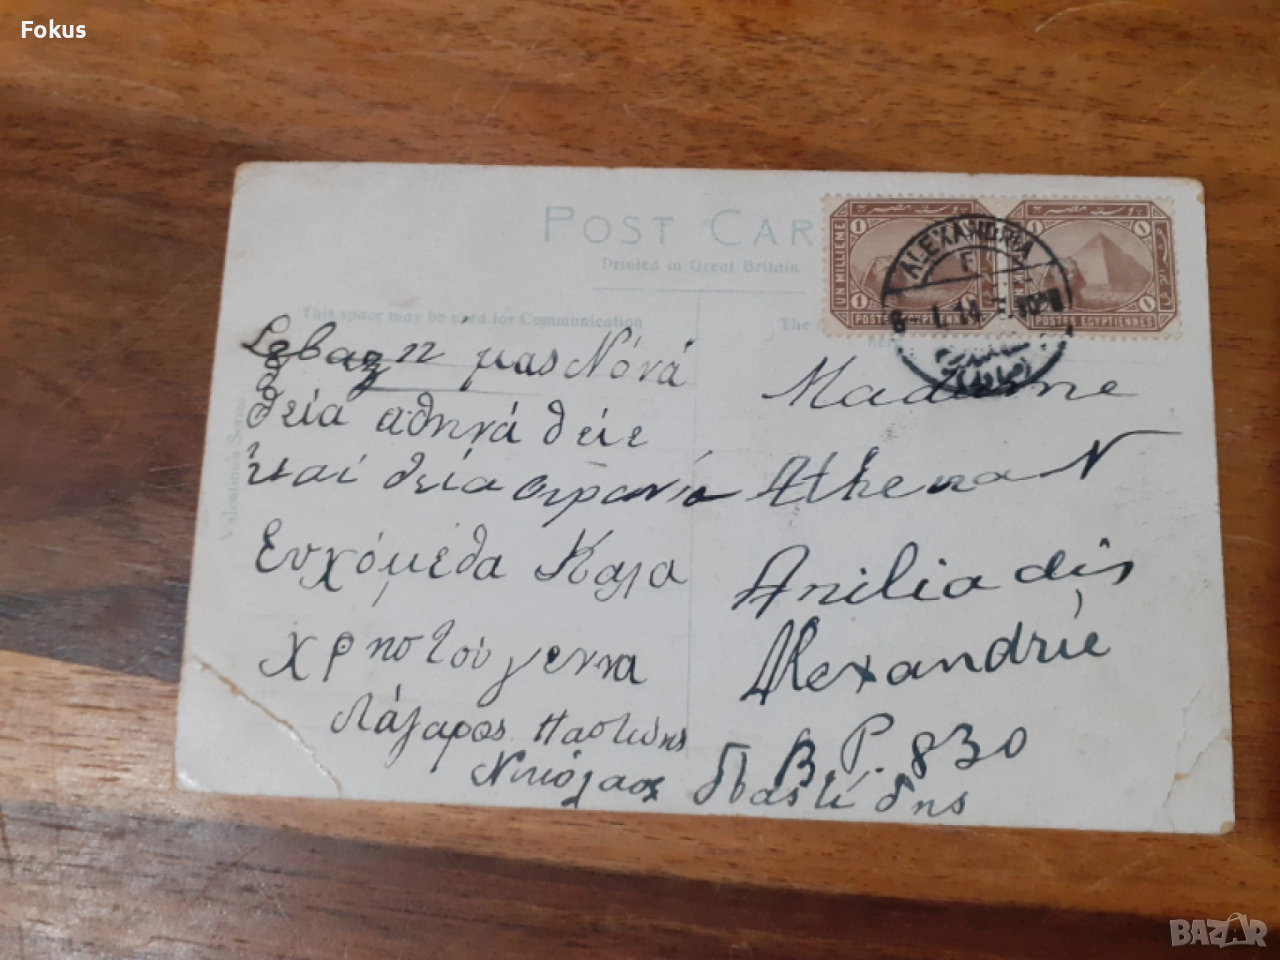 Fokus
POST CAR
Printed in Great Britain
This space may be used for Communication
The
Valentines Series
UN MILLIEME
POSTES EGYPTIENNES
1
1
1
1
ALEXANDRIA
F
μας Νόνά
θεία αθηνά θείε
και θεία
Ευχόμεθα Καλα
χρηστούγεννα
Λάζαρος Παστίδης
Νικόλαος Παστίδης
Madame
Athena N
Aniliadis
Alexandrie
B P. 830
BAZAR